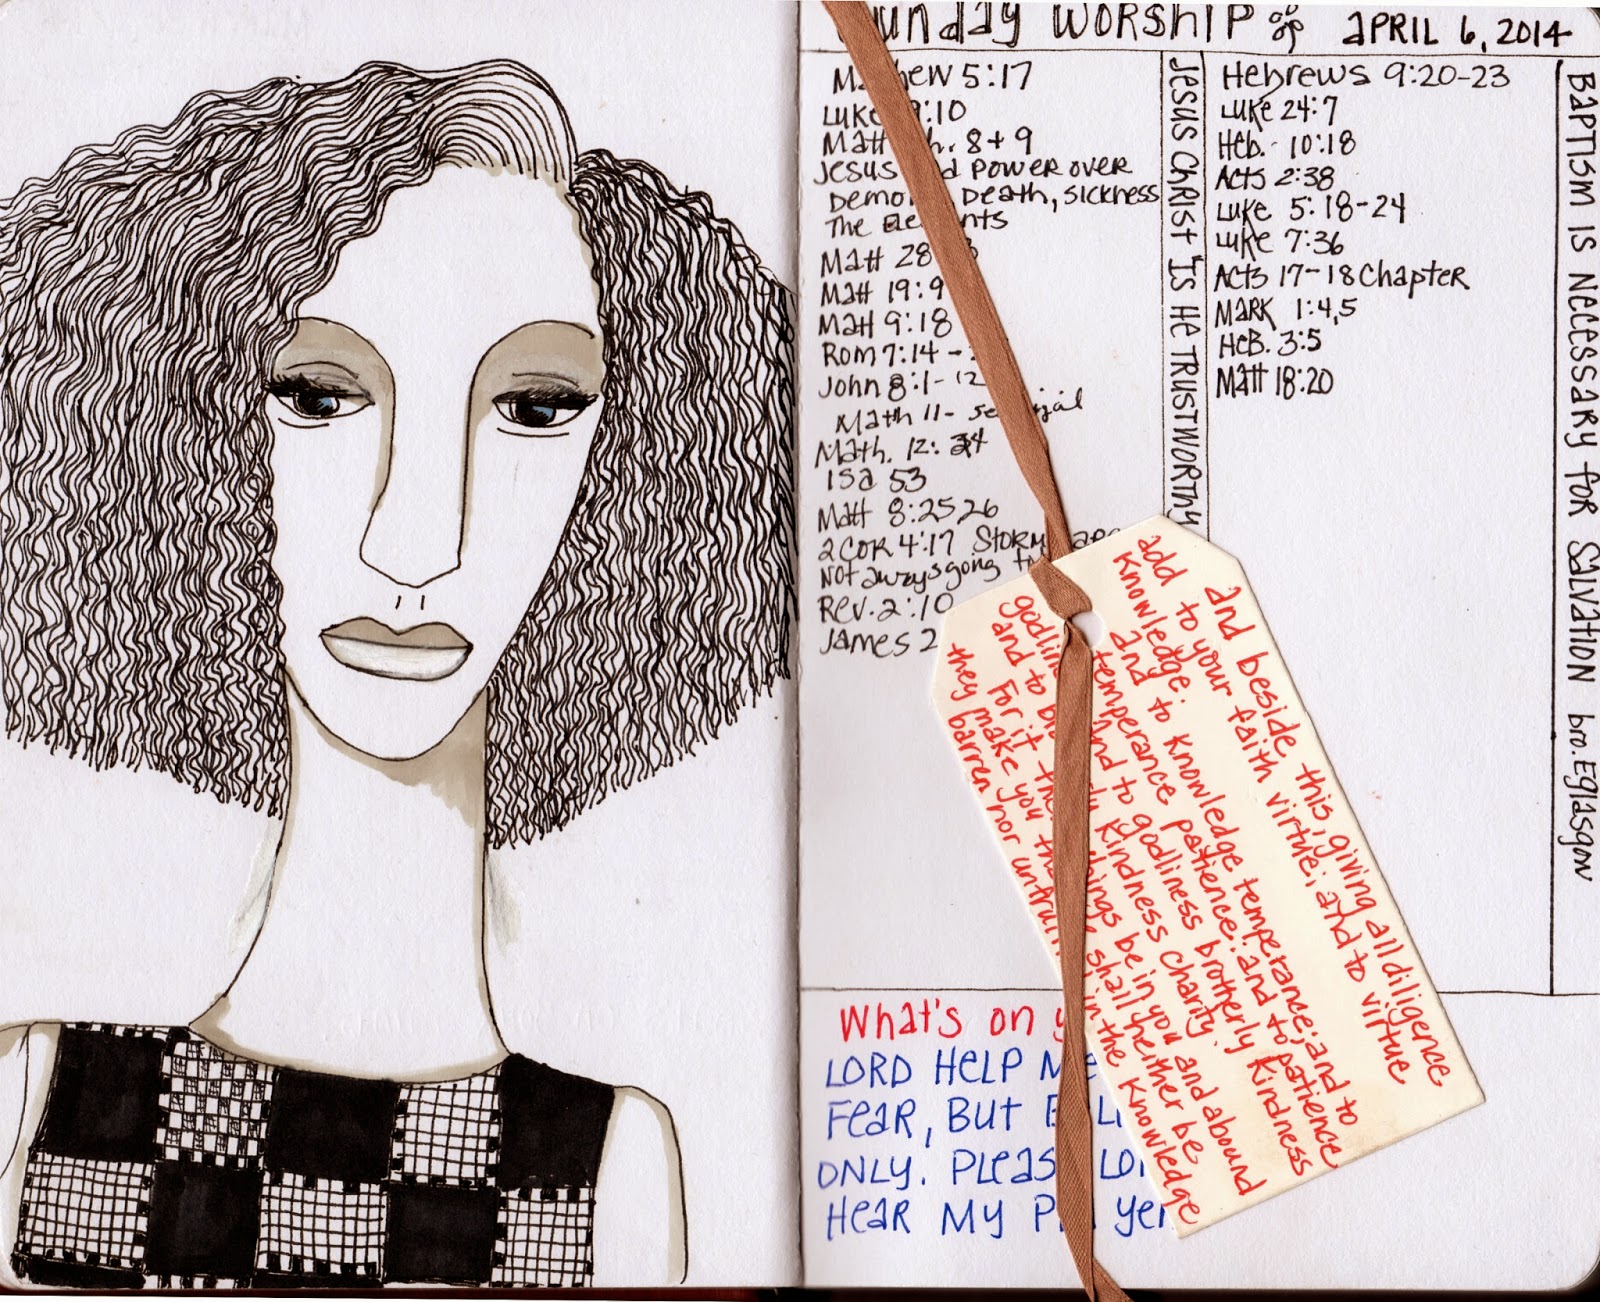 Sunday WORSHIP APRIL 6, 2014
Mathew 5:17
Luke 9:10
Matt ch. 8+9
Jesus power over
Demons Death, sickness
The Elements
Matt 28
Matt 19:9
Matt 9:18
Rom 7:14 -
John 8:1-12
Math 11-
Math. 12:
Isa 53
Matt 8:25 26
2 COR 4:17 STORM
Not going
Rev. 2:10
James 2
JESUS CHRIST "IS HE TRUSTWORTHY
Hebrews 9:20-23
Luke 24:7
Heb. - 10:18
Acts 2:38
Luke 5:18-24
Luke 7:36
Acts 17-18 Chapter
MARK 1:4,5
HEB. 3:5
Matt 18:20
BAPTISM IS NECESSARY FOR SALVATION bro. Eglasgow
and beside this, giving all diligence
add to your faith virtue; and to virtue
Knowledge.
and to Knowledge temperance; and to
temperance patience.. and to patience
godliness And to godliness brotherly Kindness
and to brotherly Kindness charity.
For if these things be in you and abound
they make you that ye shall neither be
barren nor unfruitful in the Knowledge
What's on
LORD HELP ME
FEAR, BUT
ONLY. PLEASE LORD
HEAR MY PRAYER